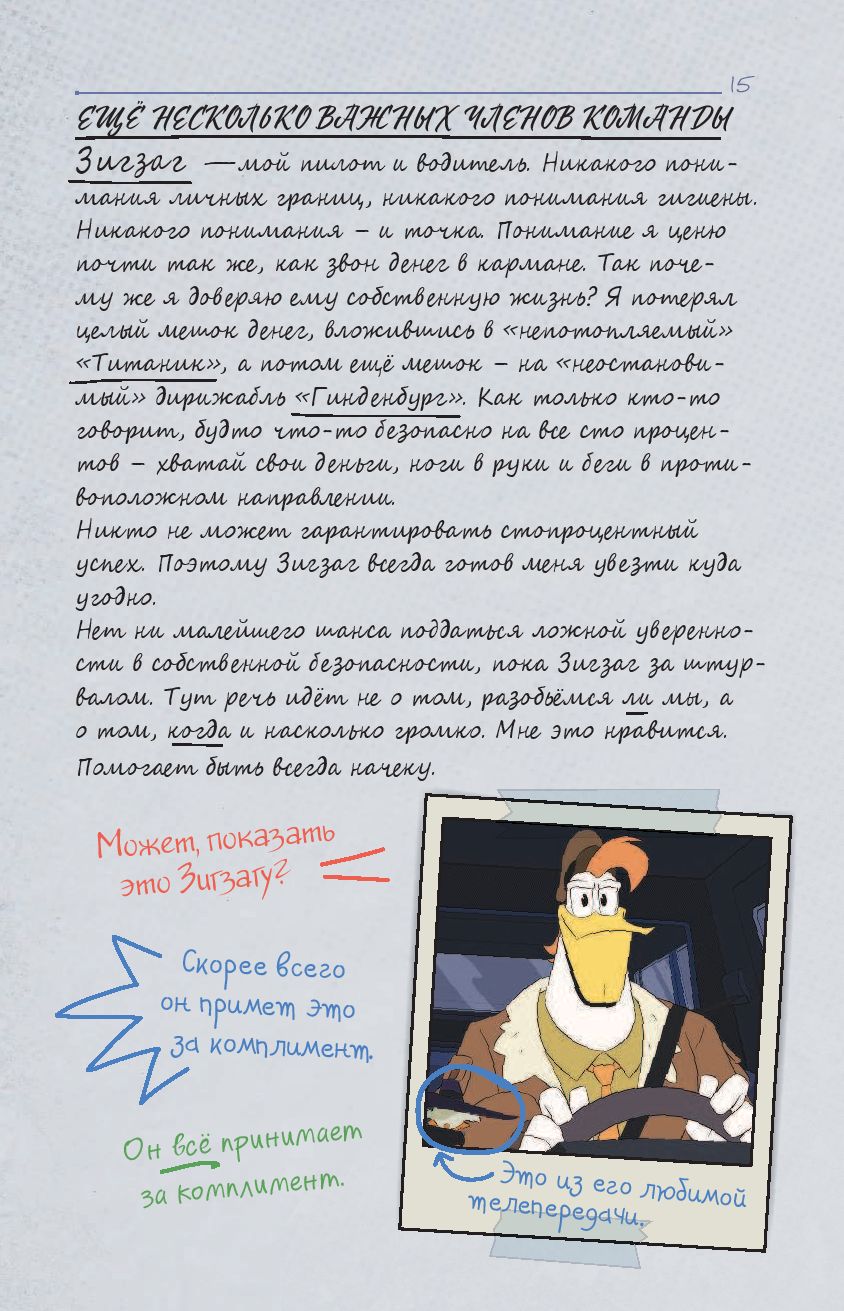 15
ЕЩЁ НЕСКОЛЬКО ВАЖНЫХ ЧЛЕНОВ КОМАНДЫ
Зигзаг — мой пилот и водитель. Никакого пони-
мания личных границ, никакого понимания гигиены.
Никакого понимания – и точка. Понимание я ценю
почти так же, как звон денег в кармане. Так поче-
му же я доверяю ему собственную жизнь? Я потерял
целый мешок денег, вложившись в «непотопляемый»
«Титаник», а потом ещё мешок – на «неостанови-
мый» дирижабль «Гинденбург». Как только кто-то
говорит, будто что-то безопасно на все сто процен-
тов – хватай свои деньги, ноги в руки и беги в проти-
воположном направлении.
Никто не может гарантировать стопроцентный
успех. Поэтому Зигзаг всегда готов меня увезти куда
угодно.
Нет ни малейшего шанса поддаться ложной уверенно-
сти в собственной безопасности, пока Зигзаг за штур-
валом. Тут речь идёт не о том, разобьёмся ли мы, а
о том, когда и насколько громко. Мне это нравится.
Помогает быть всегда начеку.
Может, показать
это Зигзагу?
Скорее всего
он примет это
за комплимент.
Он всё принимает
за комплимент.
Это из его любимой
телепередачи.